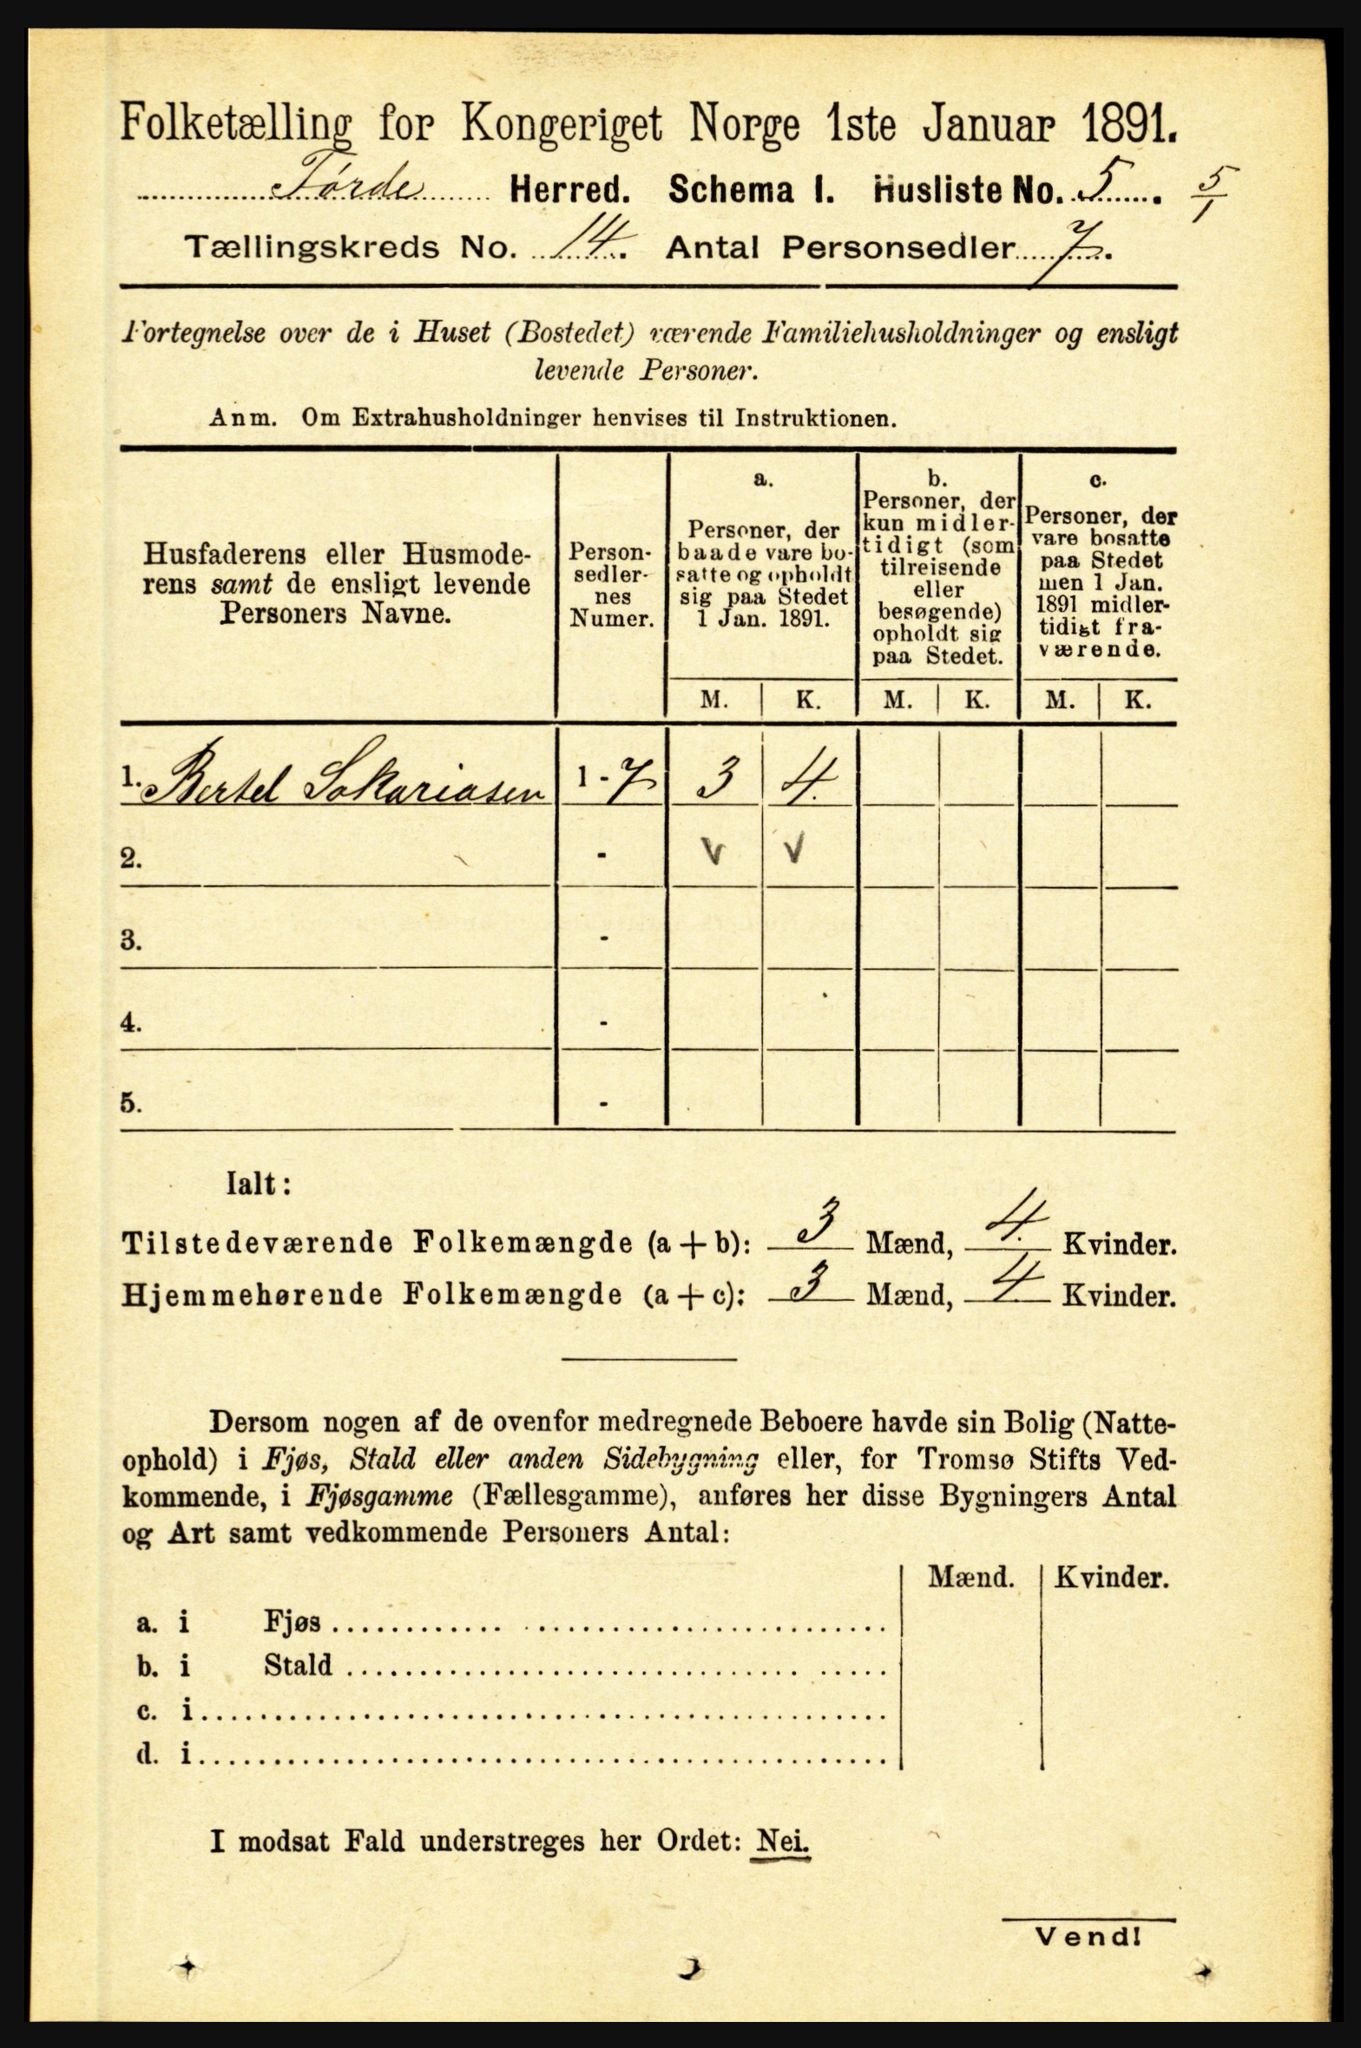 Folketælling for Kongeriget Norge 1ste Januar 1891.
Førde Herred. Schema I. Husliste No. 5. 5/1
Tællingskreds No. 14. Antal Personsedler 7.
Fortegnelse over de i Huset (Bostedet) værende Familiehusholdninger og ensligt
levende Personer.
Anm. Om Extrahusholdninger henvises til Instruktionen.
Husfaderens eller Husmode-
rens samt de ensligt levende
Personers Navne.
Person-
sedler-
nes
Numer.
a.
Personer, der
baade vare bo-
satte og opholdt
sig paa Stedet
1 Jan. 1891.
b.
Personer, der
kun midler-
tidigt (som
tilreisende
eller
besøgende)
opholdt sig
paa Stedet.
c.
Personer, der
vare bosatte
paa Stedet
men 1 Jan.
1891 midler-
tidigt fra-
værende.
M. K. M. K. M. K.
1. Bertel Sakariasen 1-7 3 4.
2. - v v
3. -
4. -
5. -
Ialt:
Tilstedeværende Folkemængde (a+b): 3 Mænd, 4. Kvinder.
Hjemmehørende Folkemængde (a+c): 3 Mænd, 4 Kvinder.
Dersom nogen af de ovenfor medregnede Beboere havde sin Bolig (Natte-
ophold) i Fjøs, Stald eller anden Sidebygning eller, for Tromsø Stifts Ved-
kommende, i Fjøsgamme (Fællesgamme), anføres her disse Bygningers Antal
og Art samt vedkommende Personers Antal:
Mænd. Kvinder.
a. i Fjøs
b. i Stald
c. i
d. i
I modsat Fald understreges her Ordet: Nei.
Vend!